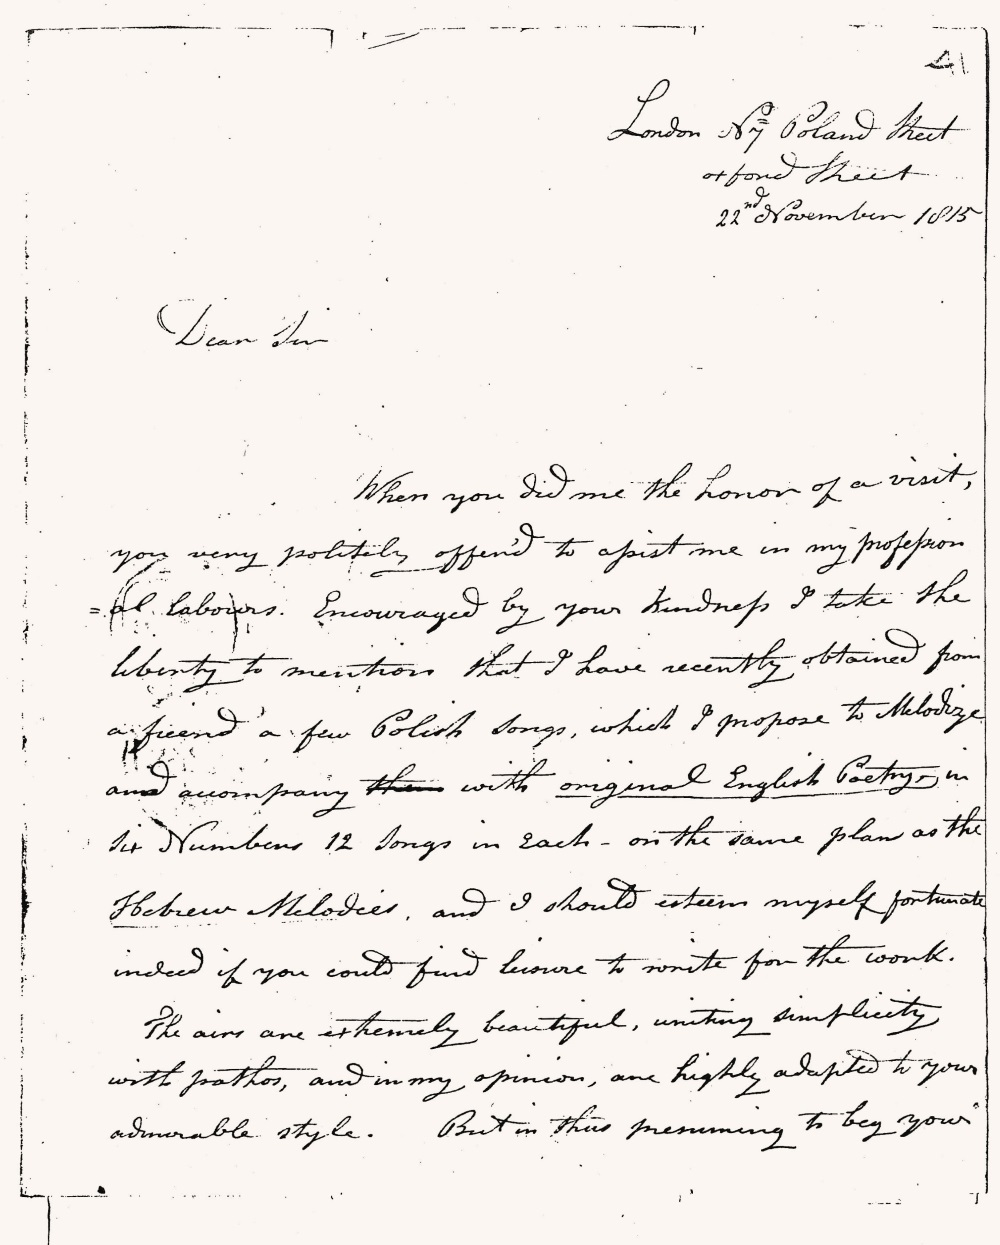 41
London No 7 Poland Street
oxford Street
22nd November 1815
Dear Sir
When you did me the honor of a visit,
you very politely offer'd to assist me in my profession
=al labours. Encouraged by your kindness I take the
liberty to mention that I have recently obtained from
a friend a few Polish songs, which I propose to Melodize
and accompany them with original English Poetry in
six Numbers 12 songs in Each - on the same plan as the
Hebrew Melodies, and I should esteem myself fortunate
indeed if you could find leisure to write for the work.
The airs are extremely beautiful, uniting simplicity
with pathos, and in my opinion, are highly adapted to your
admirable style. But in thus presuming to beg your